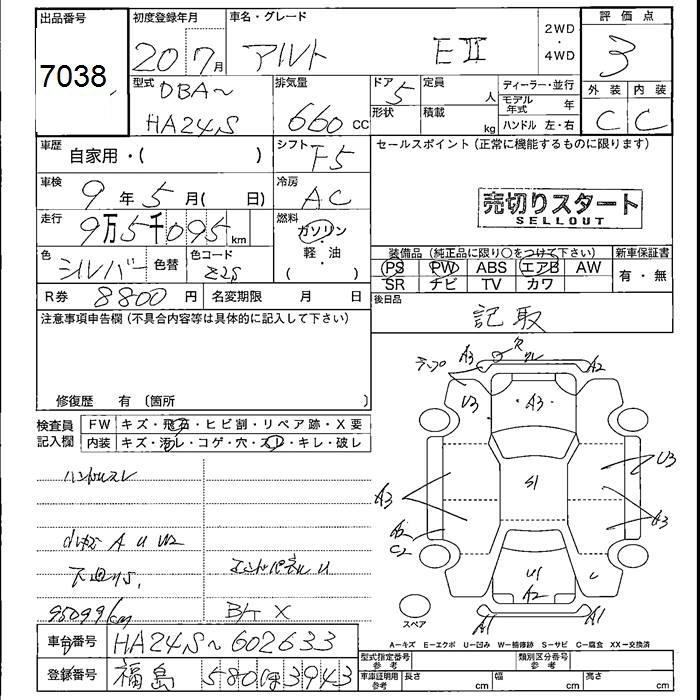 出品番号 初度登録年月 車名・グレード 2WD・4WD 評価点
7038 20 7月 アルト EⅡ 3
型式 排気量 ドア 定員 ディーラー・並行 外装 内装
DBA~ 5 人 モデル年式 年
HA24S 660cc 形状 積載 kg ハンドル 左・右 C C
車歴 自家用・( ) シフト F5 セールスポイント(正常に機能するものに限ります)
車検 9年5月( 日) 冷房 AC 売切りスタート
SELLOUT
走行 9万5千095km 燃料 ガソリン・軽・油 ( )
色 シルバー 色替 色コード Z2S
装備品(純正品に限り○をつけて下さい) 新車保証書
PS PW ABS エアB AW 有・無
SR ナビ TV カワ
R券 8800円 名変期限 月 日 後日品
記取
注意事項申告欄(不具合内容等は具体的に記入して下さい)
修復歴 有〔箇所 〕
検査員記入欄 FW キズ・飛石・ヒビ割・リペア跡・X要
内装 キズ・汚レ・コゲ・穴・スレ・キレ・破レ
ハンドルスレ
A U W2
下廻りS. エンドパネルU
95099km B/K X
ランプ A3 A2
U3 A3
A3 S1 U3
A2 A3
C2
U1
A2
A1 A1
スペア
A=キズ E=エクボ U=凹み W=補修跡 S=サビ C=腐食 XX=交換済
車台番号 HA24S~602633
登録番号 福島 580 ほ 3943
型式指定番号 参考 類別区分番号 参考
車庫証明用 参考 長さ cm 幅 cm 高さ cm